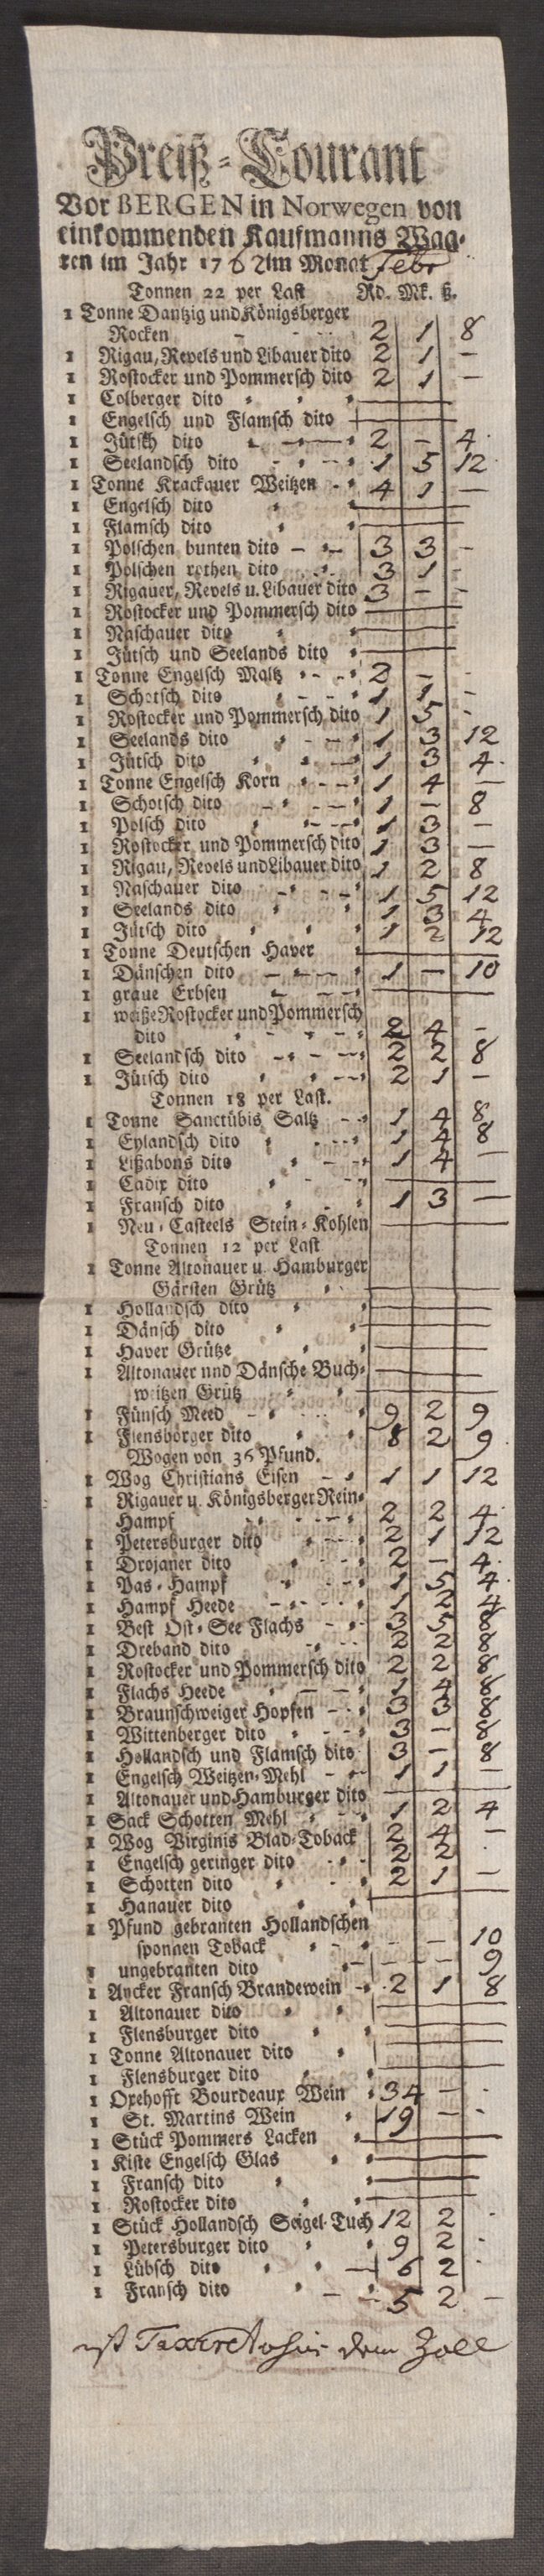 Preiß-Courant
Vor BERGEN in Norwegen von
einkommenden Kaufmanns Waa-
ren im Jahr 1762 im Monat Febr
Tonnen 22 per Last Rd. Mk. ß.
1 Tonne Dantzig und Königsberger
Rocken - 2 1 8
1 Rigau, Revels und Libauer dito 2 1 -
1 Rostocker und Pommersch dito 2 1 -
1 Colberger dito
1 Engelsch und Flamsch dito
1 Jütsch dito 2 - 4
1 Seelandsch dito 1 5 12
1 Tonne Krackauer Weitzen 4 1 -
1 Engelsch dito
1 Flamsch dito
1 Polschen bunten dito 3 3 -
1 Polschen rothen dito 3 1 -
1 Rigauer, Revels u. Libauer dito 3 - -
1 Rostocker und Pommersch dito
1 Naschauer dito
1 Jütsch und Seelands dito
1 Tonne Engelsch Maltz 2 - -
1 Schotsch dito 1 5 -
1 Rostocker und Pommersch dito 1 5 -
1 Seelands dito 1 3 12
1 Jütsch dito 1 3 4
1 Tonne Engelsch Korn 1 4 -
1 Schotsch dito 1 - 8
1 Polsch dito 1 3 -
1 Rostocker und Pommersch dito 1 3 -
1 Rigau, Revels und Libauer dito 1 2 8
1 Naschauer dito 1 5 12
1 Seelands dito 1 3 4
1 Jütsch dito 1 2 12
1 Tonne Deutschen Haver
1 Dänschen dito 1 - 10
1 graue Erbsen
1 weiße Rostocker und Pommersch
dito 2 4 -
1 Seelandsch dito 2 2 8
1 Jütsch dito 2 1 -
Tonnen 18 per Last.
1 Tonne Sanctübis Saltz 1 4 8
1 Eylandsch dito 1 4 8
1 Lißabons dito 1 4 -
1 Cadix dito
1 Fransch dito 1 3 -
1 Neu-Casteels Stein-Kohlen
Tonnen 12 per Last
1 Tonne Altonauer u. Hamburger
Gärsten Grütz
1 Hollandsch dito
1 Dänsch dito
1 Haver Grütze
1 Altonauer und Dänsche Buch-
weitzen Grütz
1 Fünsch Meed 9 2 9
1 Flensborger dito 8 2 9
Wogen von 36 Pfund.
1 Wog Christians Eisen 1 1 12
1 Rigauer u. Königsberger Rein-
Hampf 2 2 4
1 Petersburger dito 2 1 12
1 Drojaner dito 2 - 4
1 Pas-Hampf 1 5 4
1 Hampf Heede 1 2 4
1 Best Ost-See Flachs 3 5 8
1 Dreband dito 2 2 8
1 Rostocker und Pommersch dito 2 2 8
1 Flachs Heede 1 4 8
1 Braunschweiger Hopfen 3 3 8
1 Wittenberger dito 3 - 8
1 Hollandsch und Flamsch dito 3 - 8
1 Engelsch Weitzen-Mehl 1 1 -
1 Altonauer und Hamburger dito
1 Sack Schotten Mehl 1 2 4
1 Wog Virginis Blad-Toback 2 4 -
1 Engelsch geringer dito 2 2
1 Schotten dito 2 1 -
1 Hanauer dito
1 Pfund gebranten Hollandschen
sponnen Toback - - 10
1 ungebranten dito - - 9
1 Ancker Fransch Brandewein 2 1 8
1 Altonauer dito
1 Flensburger dito
1 Tonne Altonauer dito
1 Flensburger dito
1 Oxehofft Bourdeaux Wein 34 - -
1 St. Martins Wein 19 - -
1 Stück Pommers Lacken
1 Kiste Engelsch Glas
1 Fransch dito
1 Rostocker dito
1 Stück Hollandsch Segel-Tuch 12 2 -
1 Petersburger dito 9 2 -
1 Lübsch dito 6 2 -
1 Fransch dito 5 2 -
dem Zoll